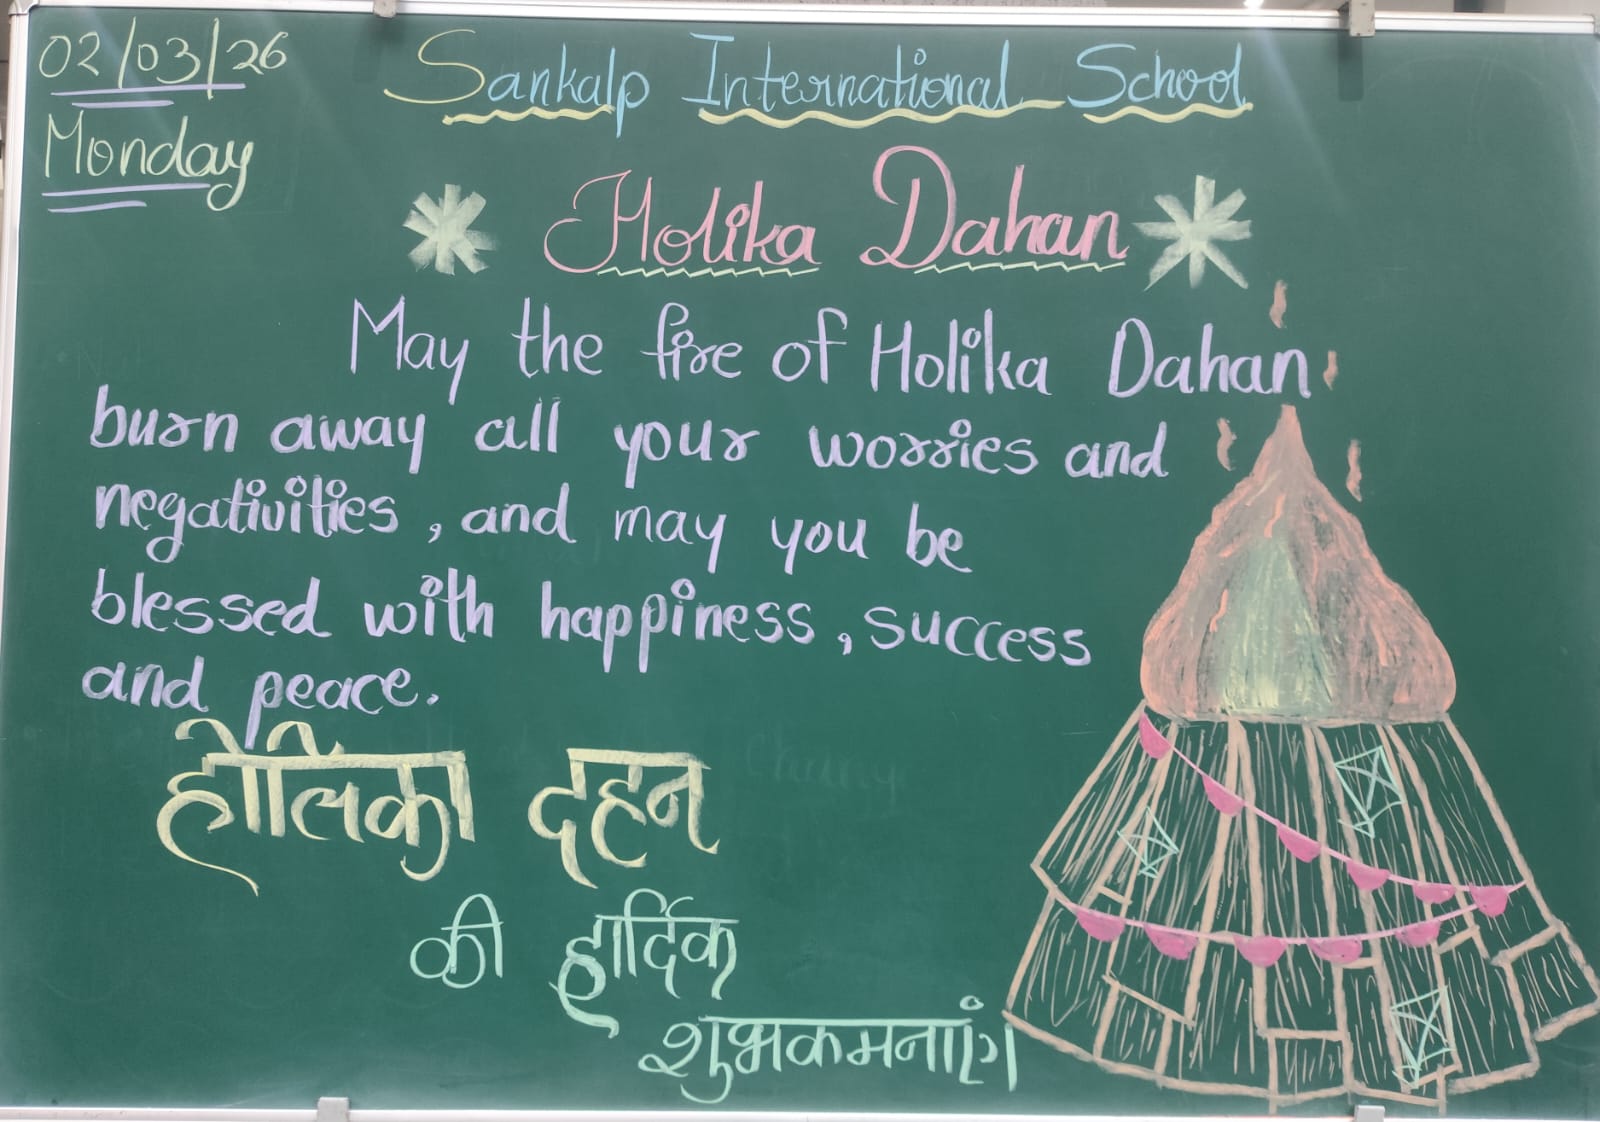 02/03/26
Monday
Sankalp International School
Holika Dahan
May the fire of Holika Dahan
burn away all your worries and
negativities, and may you be
blessed with happiness, success
and peace.
होलिका दहन
की हार्दिक
शुभकमनाएं